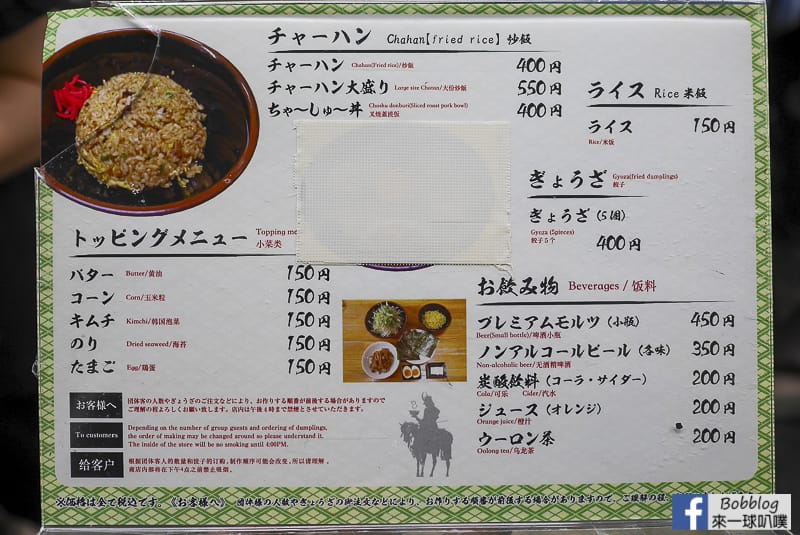 チャーハン Chahan【fried rice】炒飯
チャーハン Chahan(Fried rice)/炒飯 400円
チャーハン大盛り Large size Charan/大份炒飯 550円
ちゃ〜しゅ〜丼 Chashu donburi(Sliced roast pork bowl) 400円
叉烧蓋浇饭
ライス Rice 米飯
ライス 150円
Rice/米饭
ぎょうざ Gyoza(fried dumplings)
餃子
ぎょうざ (5個)
Gyoza (5pieces)
餃子5个 400円
トッピングメニュー Topping
小菜类
バター Butter/黄油 150円
コーン Corn/玉米粒 150円
キムチ Kimchi/韩国泡菜 150円
のり Dried seaweed/海苔 150円
たまご Egg/鶏蛋 150円
お飲み物 Beverages / 饭料
プレミアムモルツ (小瓶) 450円
Beer(Small bottle)/啤酒小瓶
ノンアルコールビール (各味) 350円
Non-alcoholic beer/无酒精啤酒
炭酸飲料 (コーラ・サイダー) 200円
Cola/可乐 Cider/汽水
ジュース (オレンジ) 200円
Orange juice/橙汁
ウーロン茶 200円
Oolong tea/乌龙茶
お客様へ
団体客の人数やぎょうざのご注文などにより、お作りする順番が前後する場合がありますので
ご理解の程よろしくお願い致します。店内は午後4時まで禁煙とさせていただきます。
To customers
Depending on the number of group guests and ordering of dumplings,
the order of making may be changed around so please understand it.
The inside of the store will be no smoking until 4:00PM.
给客户
根据团体客人的数量和饺子的订购，制作順序可能会改变，所以请理解，
商店内部将在下午4点之前禁止吸烟。
※価格は全て税込です。《お客様へ》 団体様の人数やぎょうざの御注文などにより、お作りする順番が前後する場合がありますので、ご理解の程、
f Bobblog
來一球叭噗